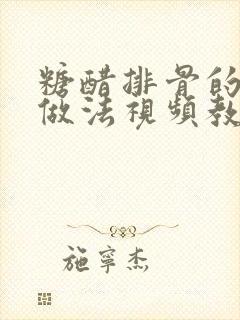 糖醋排骨的
做法視頻教
施寧杰